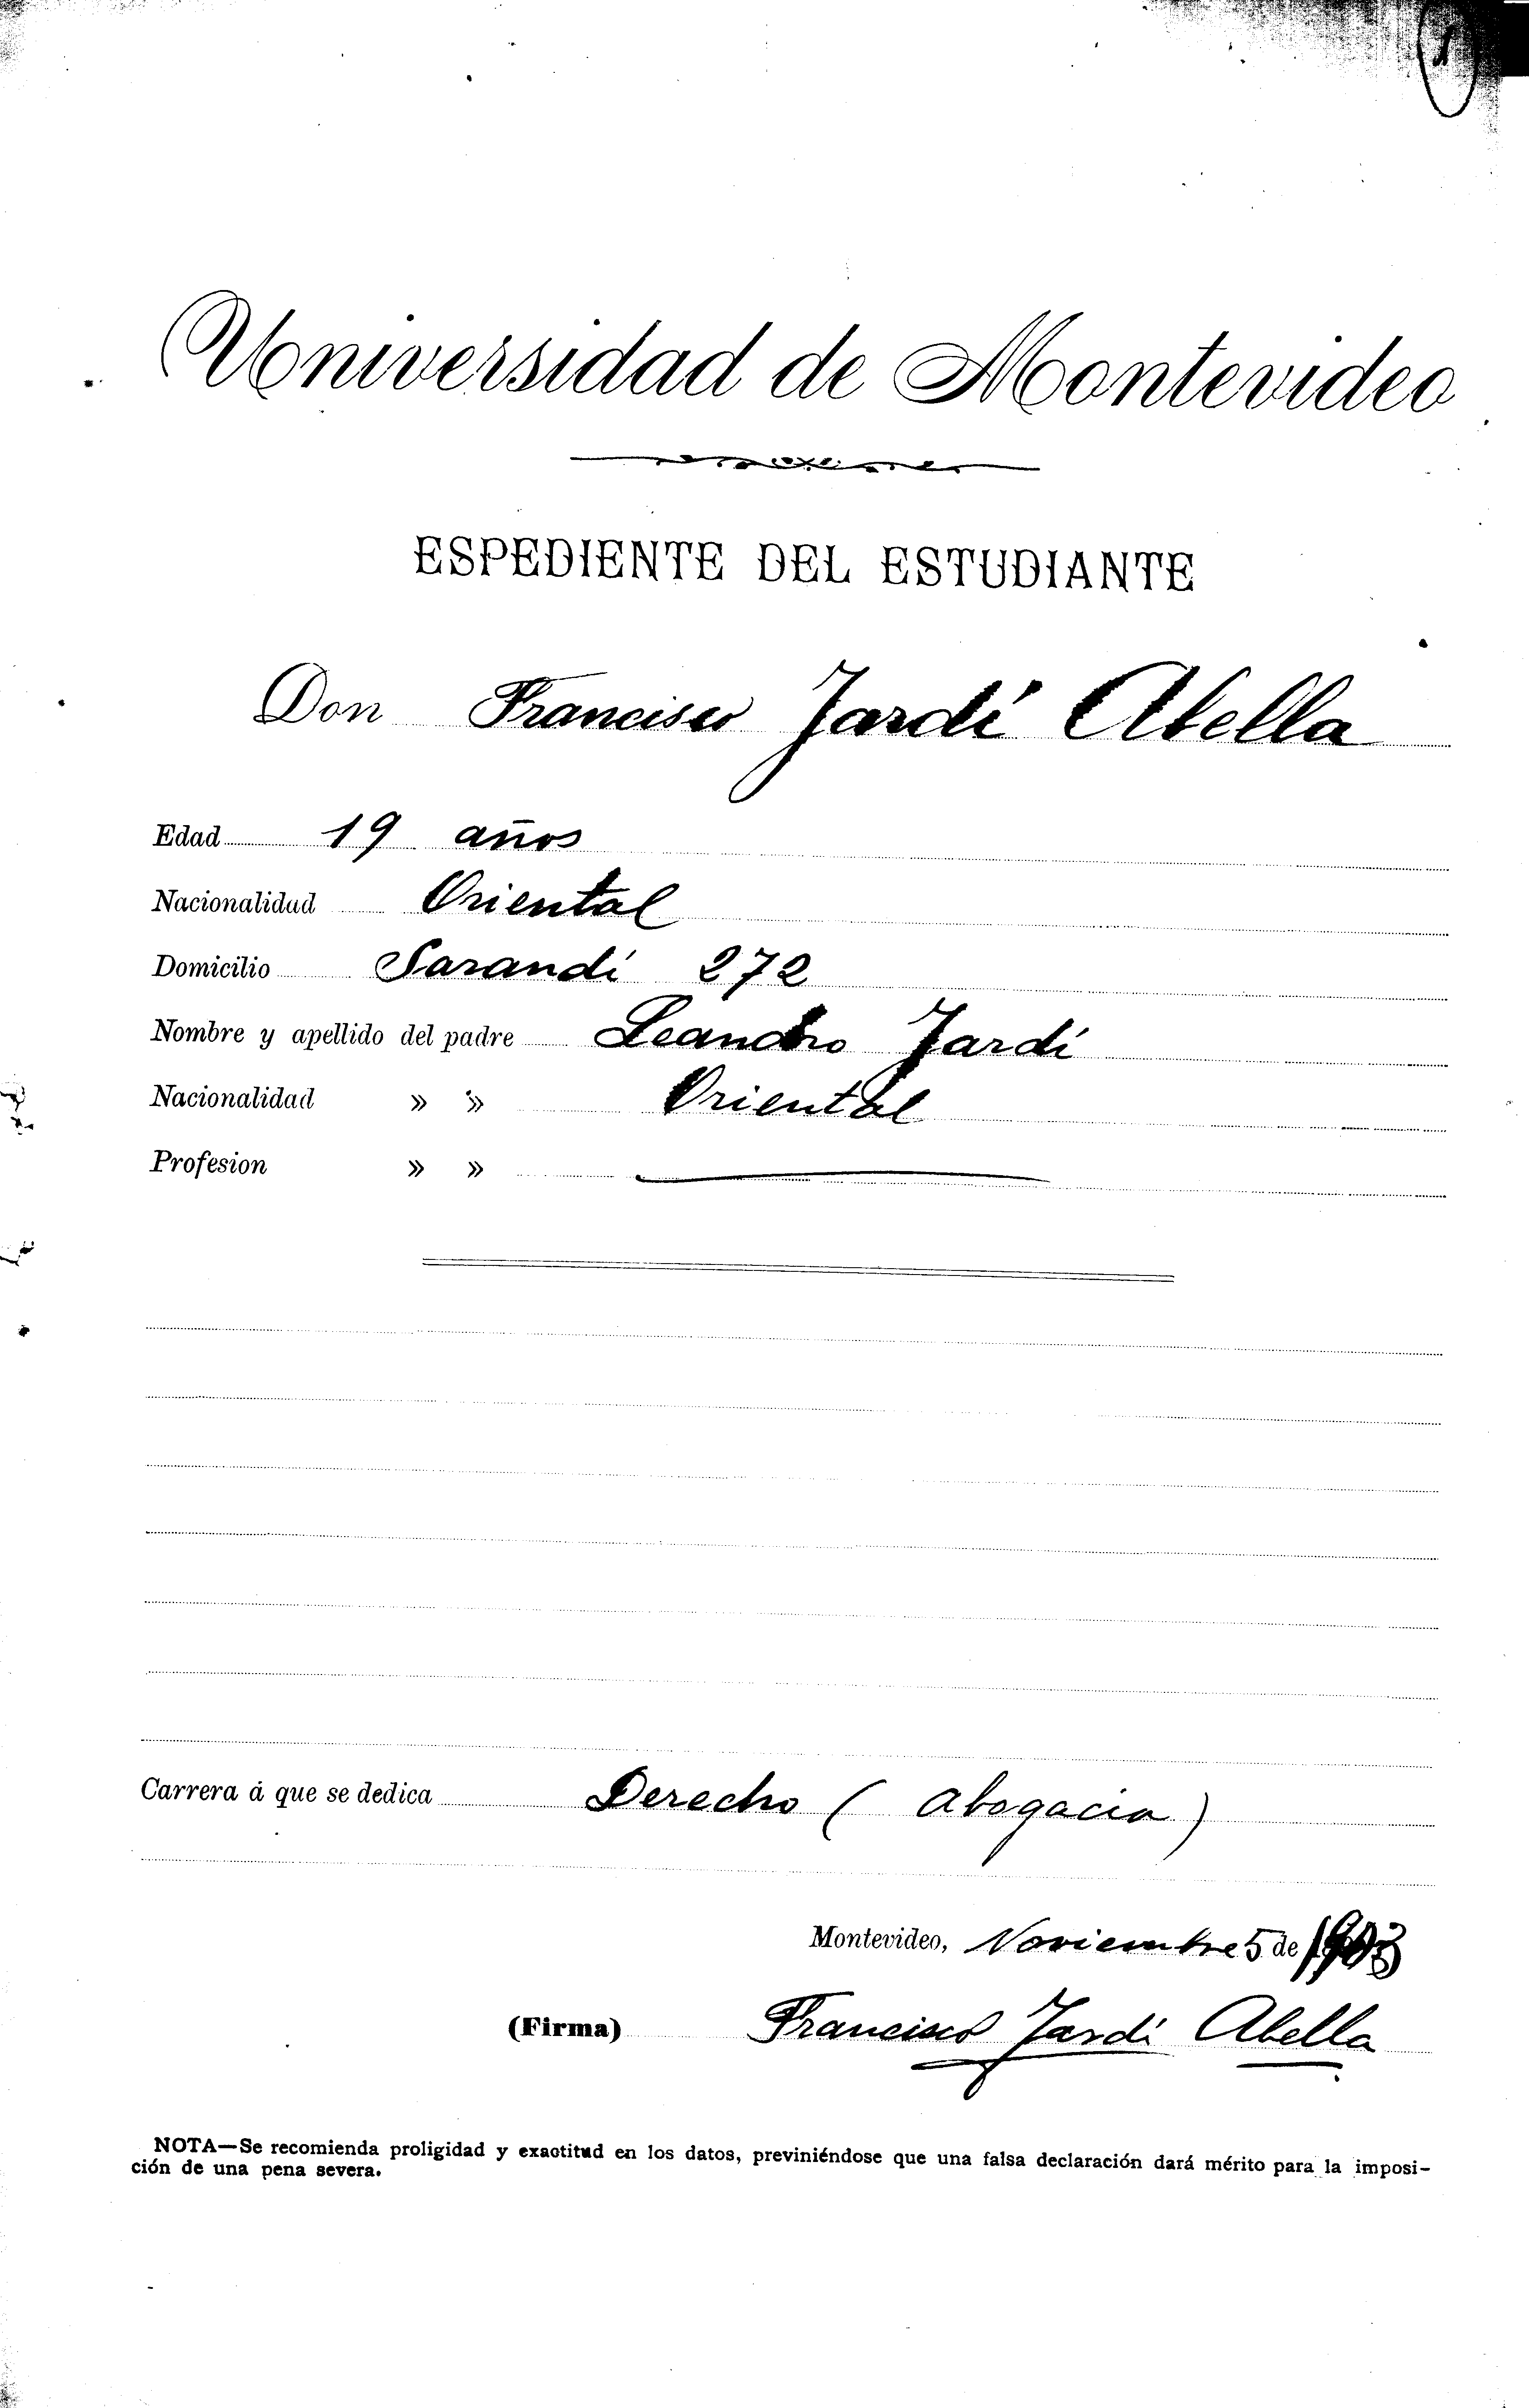 Universidad de Montevideo
ESPEDIENTE DEL ESTUDIANTE
Don Francisco Jardí Abella
Edad 19 años
Nacionalidad Oriental
Domicilio Sarandí 272
Nombre y apellido del padre Leandro Jardí
Nacionalidad » » Oriental
Profesion » »
Carrera á que se dedica Derecho ( Abogacia )
Montevideo, Noviembre 5 de 1903
(Firma) Francisco Jardi Abella
NOTA—Se recomienda proligidad y exactitud en los datos, previniéndose que una falsa declaración dará mérito para la imposi-
ción de una pena severa.